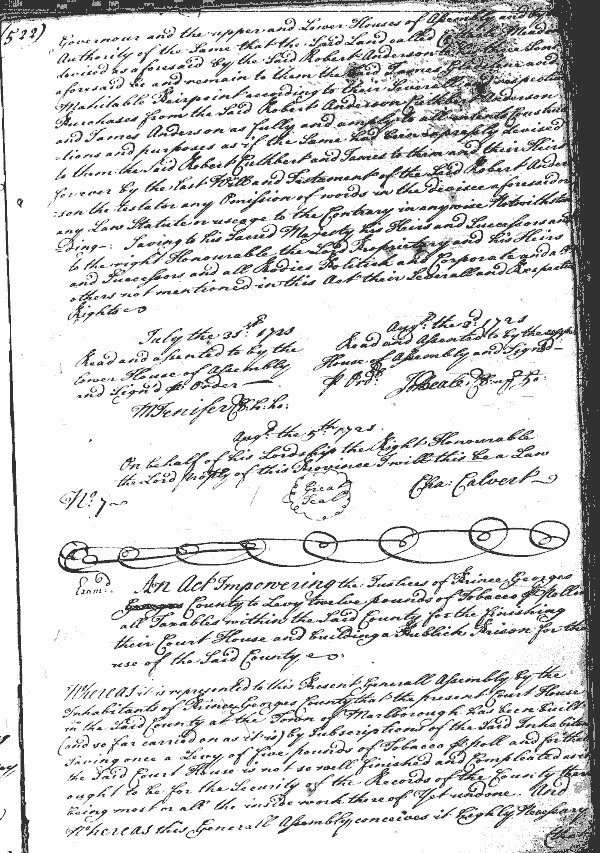 (522)
Governour and the upper and Lower Houses of Assembly and the
Authority of the Same that the Said Land called
devised as aforesaid by the Said Robert Anderson
aforesaid be and remain to them the Said James Cuthbert and
Mahitable Peirpoint according to their Severall and respective
Purchases from the Said Robert Anderson Cuthbert Anderson
and James Anderson as fully and amply to all intents Constru
ctions and purposes as if the Same had been expressly devised
to them the Said Robert Cuthbert and James to them and their Heirs
for ever by the last Will and Testament of the Said Robert Ander
son the testator any Omission of words in the devise aforesaid or
any Law Statute or usage to the Contrary in any wise Notwithstan
Ding Saving to his Sacred Majesty his Heirs and Successors and
to the right Honourable the Lord Proprietary and his Heirs
and Successors and all Bodies Politick and Corporate and all
others not mentioned in this Act their Severall and Respective
Rights
July the 31st 1725
Read and assented to by the
Lower House of Assembly
and Sign'd p Order
M Jenifer Cl: Lo: Ho:
Augst the 3d 1725
Read and assented to by the upper
House of Assembly and Signd
p Ordr
J Beale Cl up Ho:
Augst the 5th 1725
On behalf of his Lordship the Right Honourable
the Lord Proptry of this Province I will this be a Law
Great
Seal
Cha: Calvert
No: 7
Examd
An Act Impowering the Justices of Prince Georges
County to Levy twelve pounds of Tobacco p Poll on
all Taxables within the Said County for the finishing
their Court House and building a Publick Prison for the
use of the Said County
Whereas it is represented to this Present Generall Assembly by the
Inhabitants of Prince Georges County that the present Court House
in the Said County at the Town of Marlborough has been built
(and so far carried on as it is) by Subscriptions of the Said Inhabitants
Saving once a Levy of five pounds of Tobacco p poll and further
the Said Court House is not so well finished and Compleated as it
ought to be for the Security of the Records of the County there
being most or all the inside work thereof yet undone And
Whereas this Generall Assembly conceives it highly Necessary